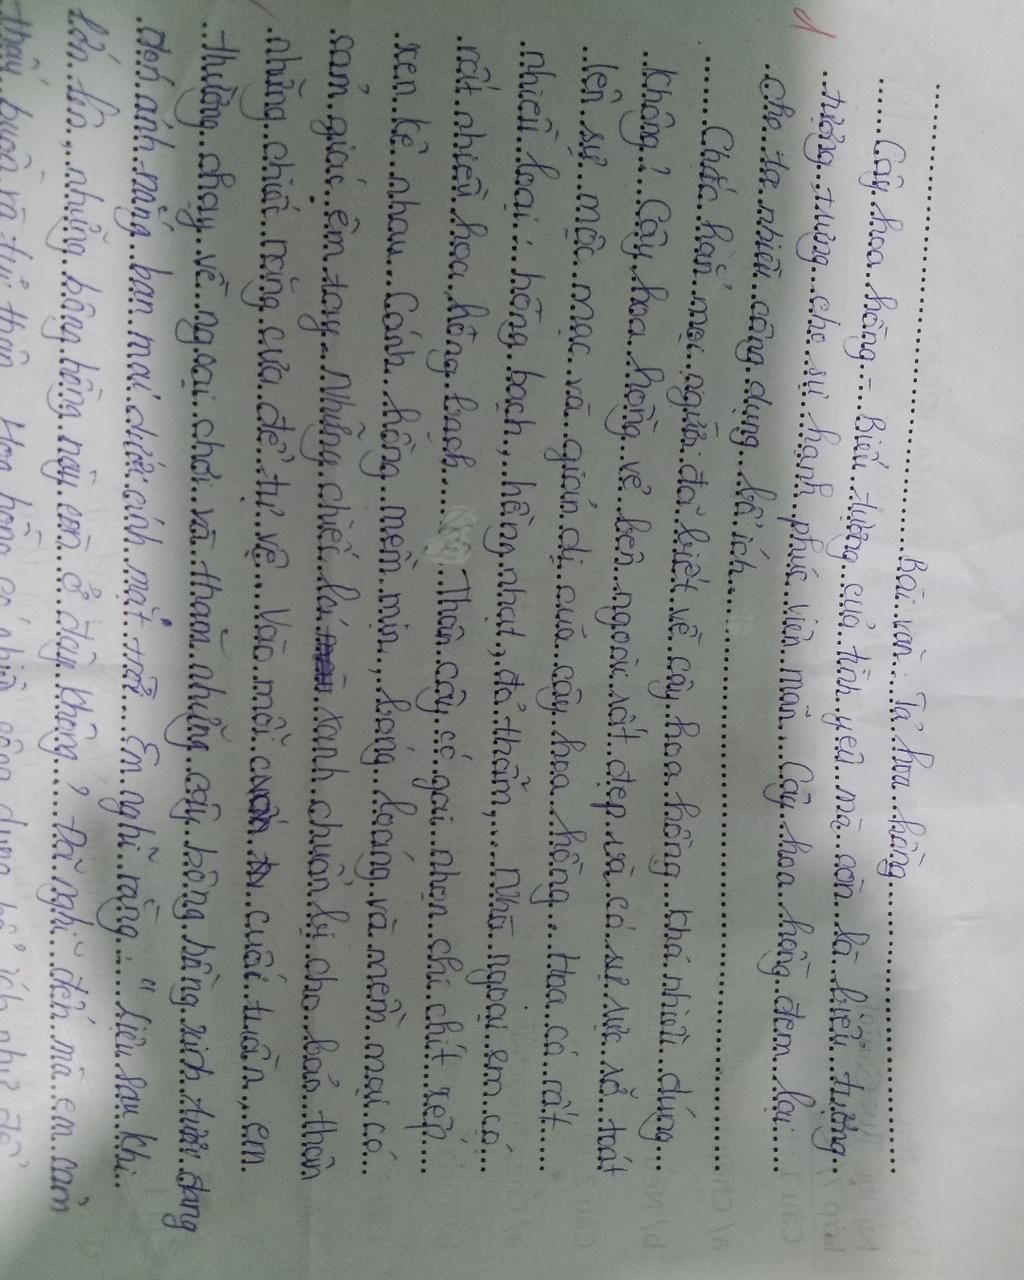 Bài văn: Tả hoa hồng
Cây hoa hồng - Biểu tượng của tình yêu mà còn là biểu tượng
tượng trưng cho sự hạnh phúc viên mãn. Cây hoa hồng đem lại
cho ta nhiều công dụng bổ ích.
Chắc hẳn mọi người đã biết về cây hoa hồng khá nhiều đúng
không? Cây hoa hồng vẻ bên ngoài rất đẹp và có sự rực rỡ toát
lên sự mộc mạc và giản dị của cây hoa hồng. Hoa có rất
nhiều loại: hồng bạch, hồng nhạt, đỏ thẫm,... Nhà ngoại em có
rất nhiều hoa hồng bạch. Thân cây có gai nhọn chi chít xếp
xen kẽ nhau. Cánh hồng mềm mịn, loáng loáng và mềm mại có
cảm giác êm tay. Những chiếc lá xanh chuẩn bị cho bản thân
những chiếc răng cưa để tự vệ. Vào mỗi cuối tuần, em
thường chạy về ngoại chơi và thăm những cây bông hồng xinh tươi đang
đón ánh nắng ban mai dưới ánh mặt trời. Em nghĩ rằng: "Liệu sau khi
lớn lên, những bông hồng này còn ở đây không? Đã nghĩ đến mà em cảm
thấy buồn và tủi thân. Hoa hồng có nhiều công dụng bổ ích như để